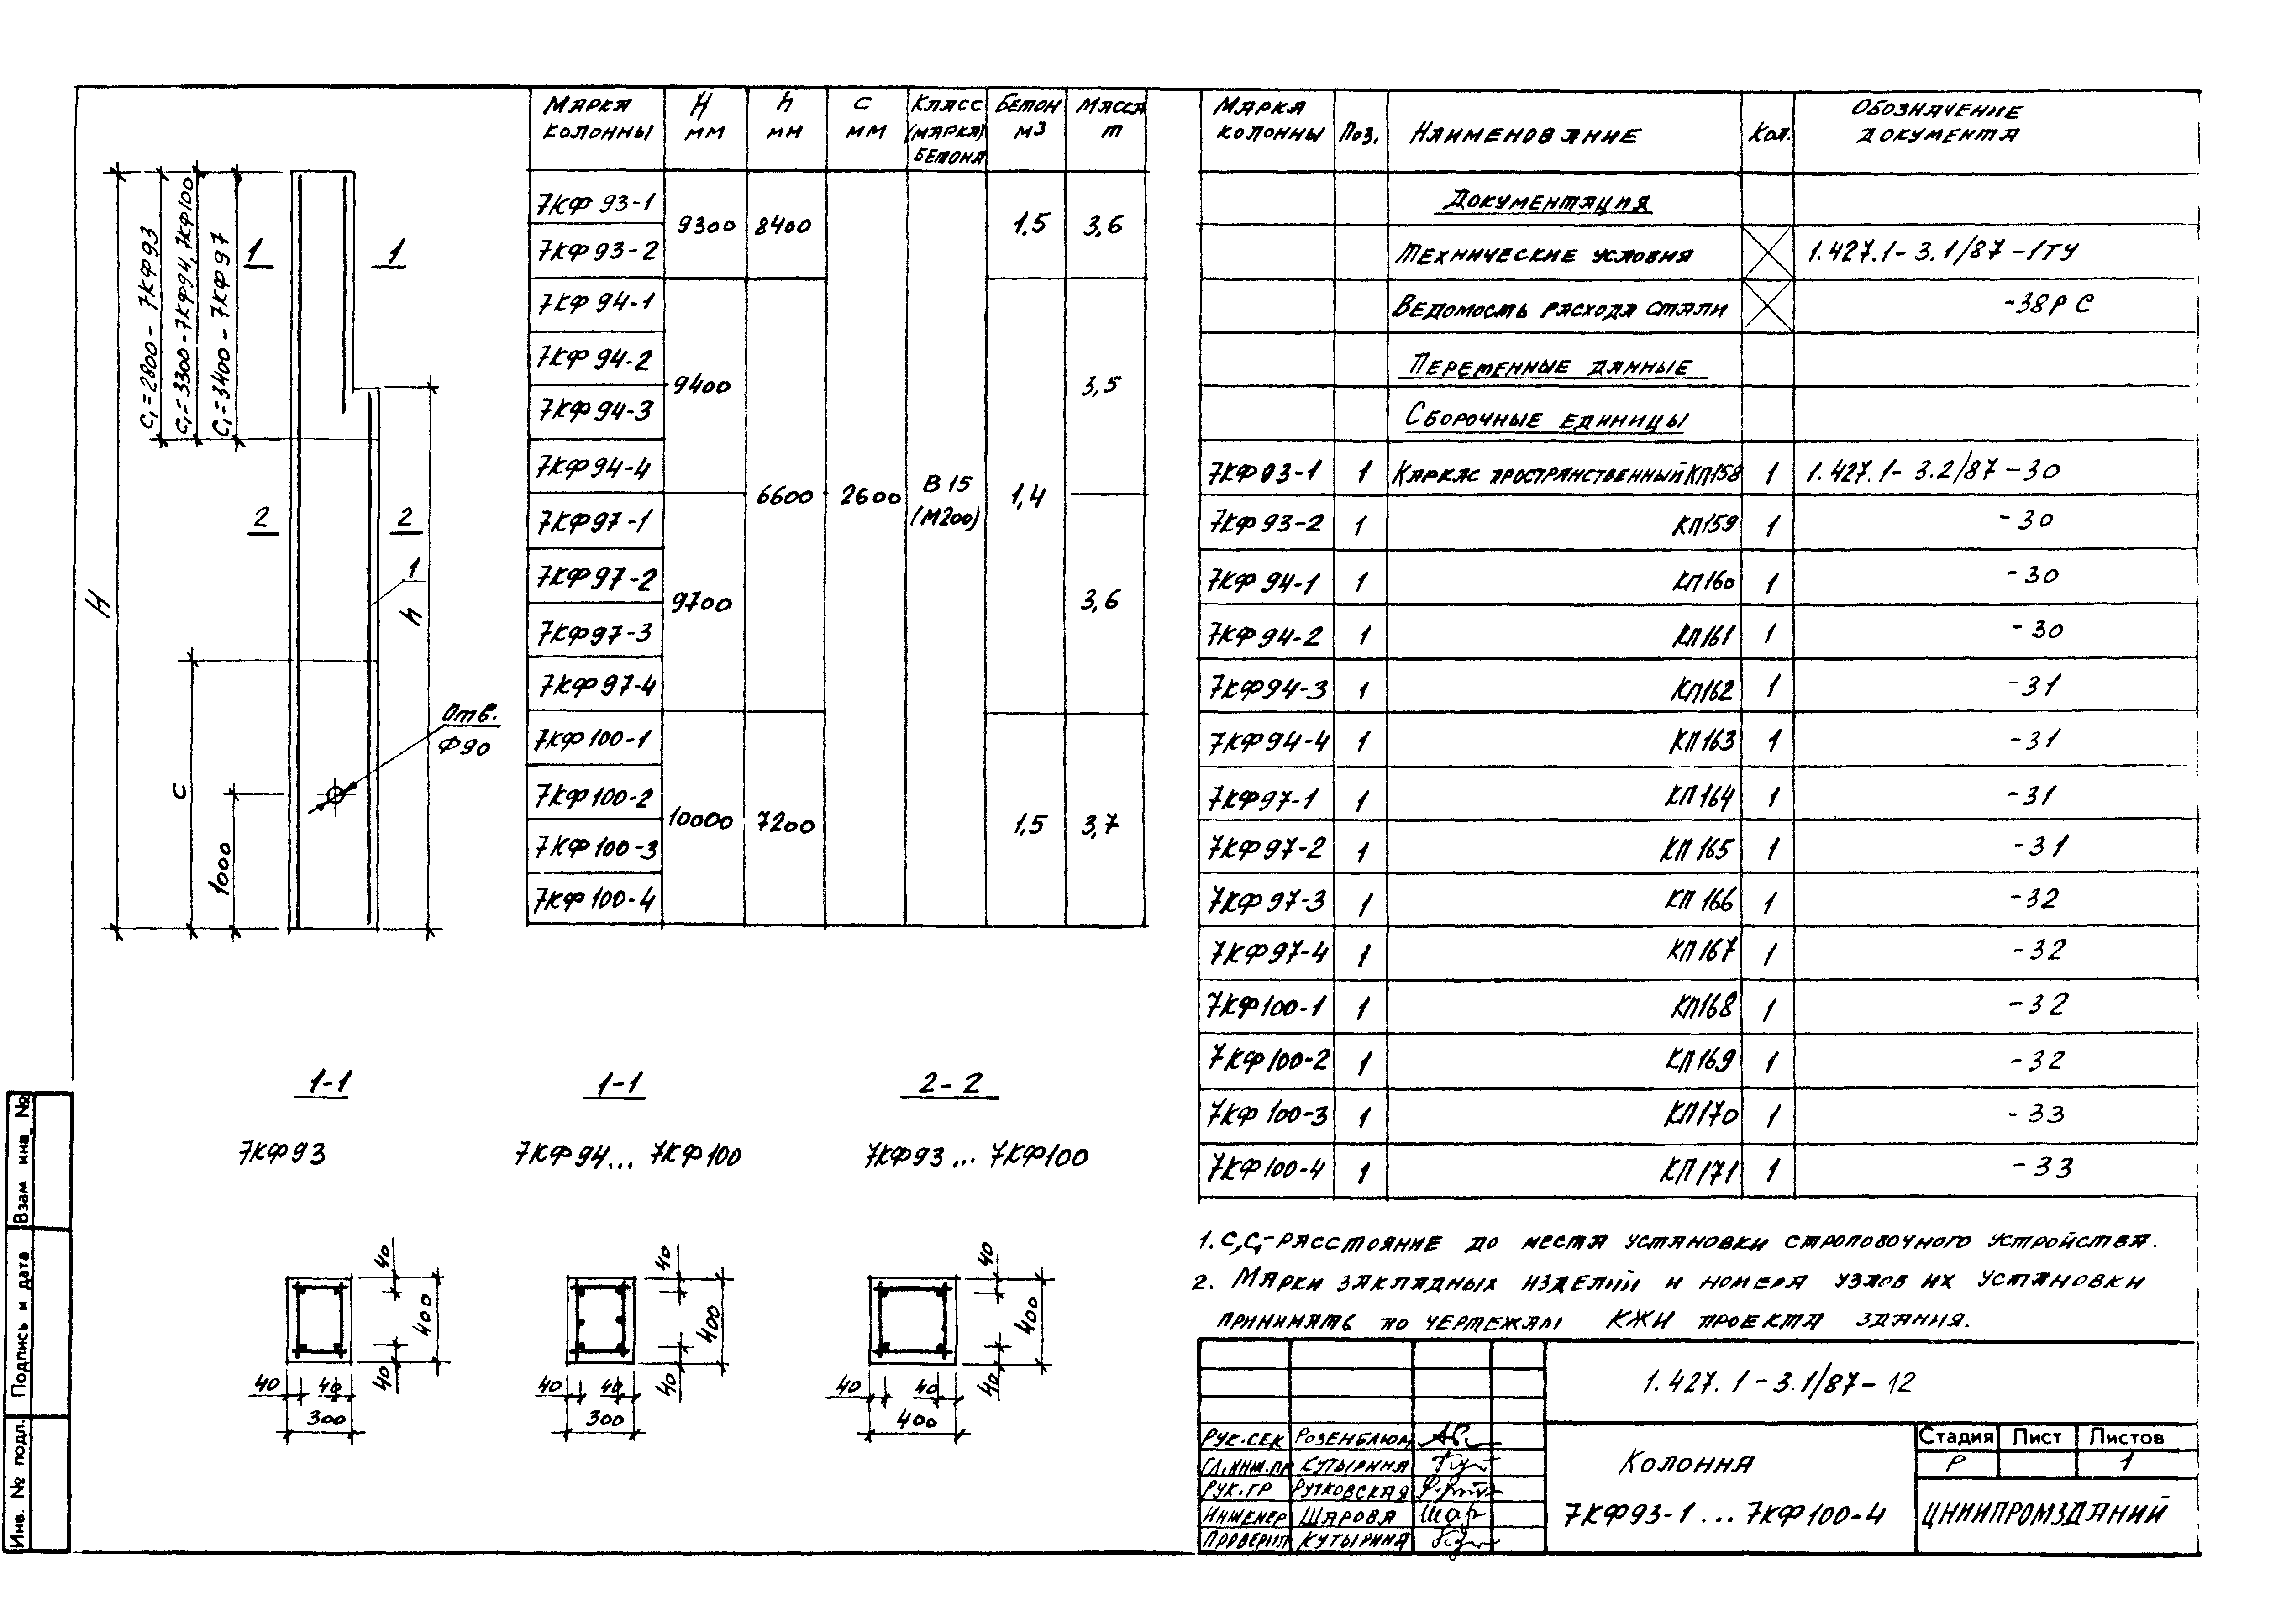 Марка колонны | H мм | h мм | C мм | Класс (марка) бетона | Бетон м3 | Масса т
7КФ 93-1 | 9300 | 8400 | 2600 | В 15 (М200) | 1,5 | 3,6
7КФ 93-2
7КФ 94-1 | 9400 | 6600 | 1,4 | 3,5
7КФ 94-2
7КФ 94-3
7КФ 94-4
7КФ 97-1 | 9700 | 3,6
7КФ 97-2
7КФ 97-3
7КФ 97-4
7КФ 100-1 | 10000 | 7200 | 1,5 | 3,7
7КФ 100-2
7КФ 100-3
7КФ 100-4
C₁=2800 - 7КФ93
C₁=3300-7КФ94, 7КФ100
C₁=3400 - 7КФ97
1 1
2 2
1
H
h
C
1000
Отв.
Ф90
Марка колонны | Поз. | Наименование | Кол. | Обозначение документа
Документация
Технические условия | 1.427.1-3.1/87-1ТУ
Ведомость расхода стали | -38РС
Переменные данные
Сборочные единицы
7КФ93-1 | 1 | Каркас пространственный КП158 | 1 | 1.427.1-3.2/87-30
7КФ93-2 | 1 | КП159 | 1 | -30
7КФ94-1 | 1 | КП160 | 1 | -30
7КФ94-2 | 1 | КП161 | 1 | -30
7КФ94-3 | 1 | КП162 | 1 | -31
7КФ94-4 | 1 | КП163 | 1 | -31
7КФ97-1 | 1 | КП164 | 1 | -31
7КФ97-2 | 1 | КП165 | 1 | -31
7КФ97-3 | 1 | КП166 | 1 | -32
7КФ97-4 | 1 | КП167 | 1 | -32
7КФ100-1 | 1 | КП168 | 1 | -32
7КФ100-2 | 1 | КП169 | 1 | -32
7КФ100-3 | 1 | КП170 | 1 | -33
7КФ100-4 | 1 | КП171 | 1 | -33
1-1
7КФ93
40
400
40
40 40
300
1-1
7КФ94... 7КФ100
40
400
40
40 40
300
2-2
7КФ93... 7КФ100
40
400
40
40 40
400
1. C, C₁-расстояние до места установки строповочного устройства.
2. Марки закладных изделий и номера узлов их установки
принимать по чертежам КЖИ проекта здания.
1.427.1-3.1/87-12
Рук.сек Розенблюм
Гл.инж.пр Кутырина
Рук.гр Рутковская
Инженер Шарова Шар
Проверил Кутырина
Колонна
7КФ93-1... 7КФ100-4
Стадия | Лист | Листов
Р | | 1
ЦНИИПРОМЗДАНИЙ
Взам инв. №
Подпись и дата
Инв. № подл.